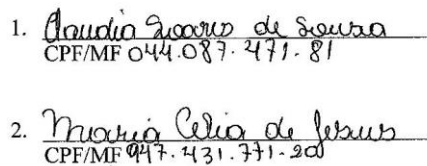 1. Claudia Soares de Souza
CPF/MF 044.087.471.81
2. Maria Celia de Jesus
CPF/MF 947.431.771-20